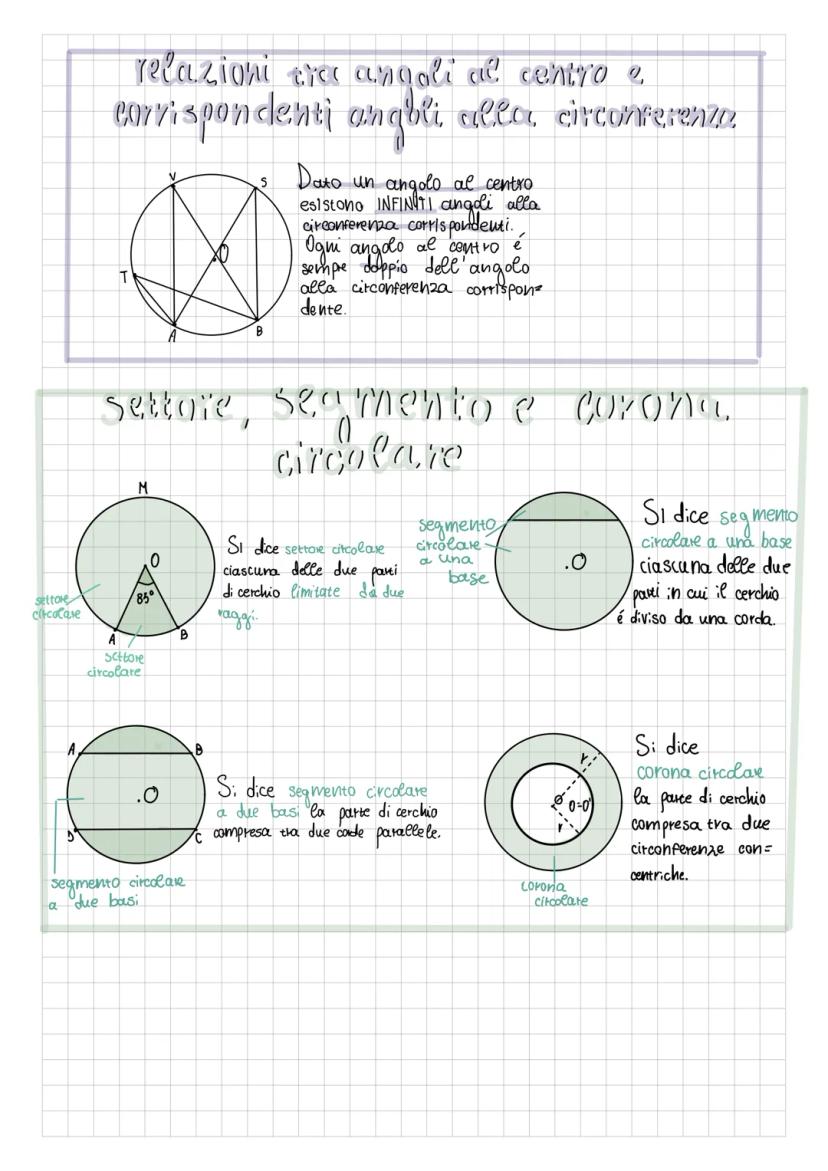 relazioni tra angoli al centro e
corrispondenti angoli alla circonferenza
V
S
O
T
A
B
Dato un angolo al centro
esistono INFINITI angoli alla
circonferenza corrispondenti.
Ogni angolo al centro é
sempre doppio dell'angolo
alla circonferenza corrispon=
dente.
settore, segmento e corona
circolare
M
O
85°
A
B
settore
circolare
settore
circolare
Si dice settore circolare
ciascuna delle due parti
di cerchio limitate da due
raggi.
segmento
circolare
a una
base
.O
Si dice segmento
circolare a una base
ciascuna delle due
parti in cui il cerchio
é diviso da una corda.
A
B
.O
D
C
segmento circolare
a due basi
Si dice segmento circolare
a due basi la parte di cerchio
compresa tra due corde parallele.
r
O=O'
r
corona
circolare
Si dice
corona circolare
la parte di cerchio
compresa tra due
circonferenze con=
centriche.